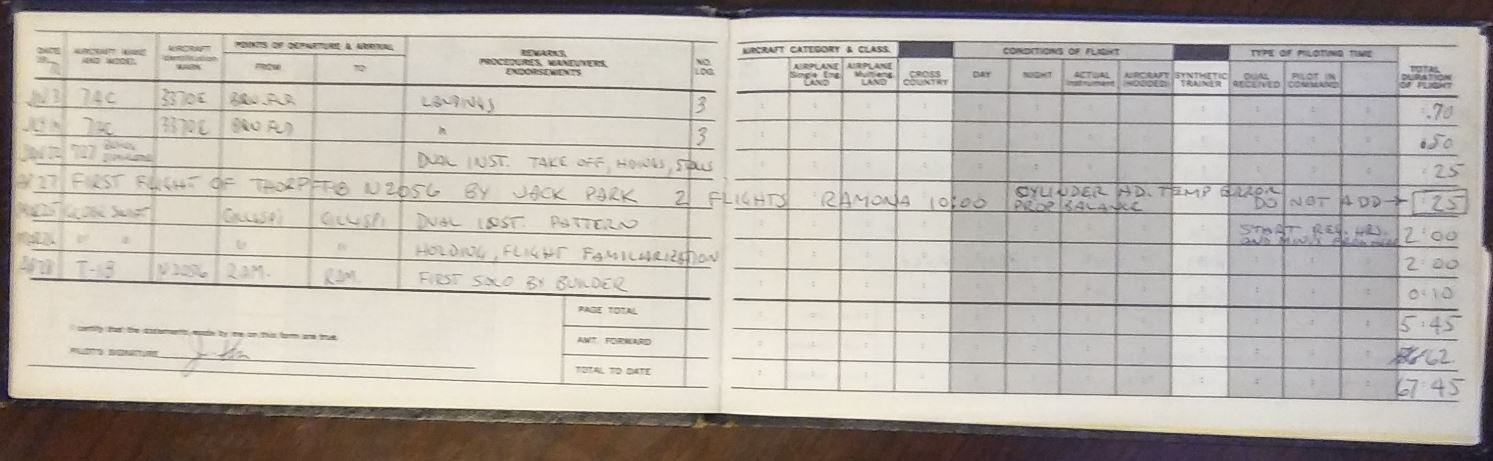 DATE AIRCRAFT MAKE AND MODEL AIRCRAFT Identification MARK POINTS OF DEPARTURE & ARRIVAL FROM TO REMARKS, PROCEDURES, MANEUVERS, ENDORSEMENTS NO. LDG. AIRCRAFT CATEGORY & CLASS AIRPLANE Single Eng. LAND AIRPLANE Multieng. LAND CROSS COUNTRY CONDITIONS OF FLIGHT DAY NIGHT ACTUAL Instrument AIRCRAFT (HOODED) SYNTHETIC TRAINER TYPE OF PILOTING TIME DUAL RECEIVED PILOT IN COMMAND TOTAL DURATION OF FLIGHT
7AC 3370E BRW FLD LANDINGS 3 .70
7AC 3370E BRW FLD " 3 .50
727 DUAL INST. TAKE OFF, HDINGS, STALLS :25
27 FIRST FLIGHT OF THORP N2056 BY JACK PARK 2 FLIGHTS RAMONA 10:00 CYLINDER HD. TEMP ERROR PROP BALANCE DO NOT ADD → :25
GLOBE SWIFT GILLESPI GILLSPI DUAL INST. PATTERN START REC. HRS. AND MINS 2:00
" " " " HOLDING, FLIGHT FAMILIARIZATION 2:00
T-18 N2056 RAM. RAM. FIRST SOLO BY BUILDER 0:10
PAGE TOTAL 5:45
I certify that the statements made by me on this form are true.
AMT. FORWARD 62
PILOT'S SIGNATURE
TOTAL TO DATE 67:45